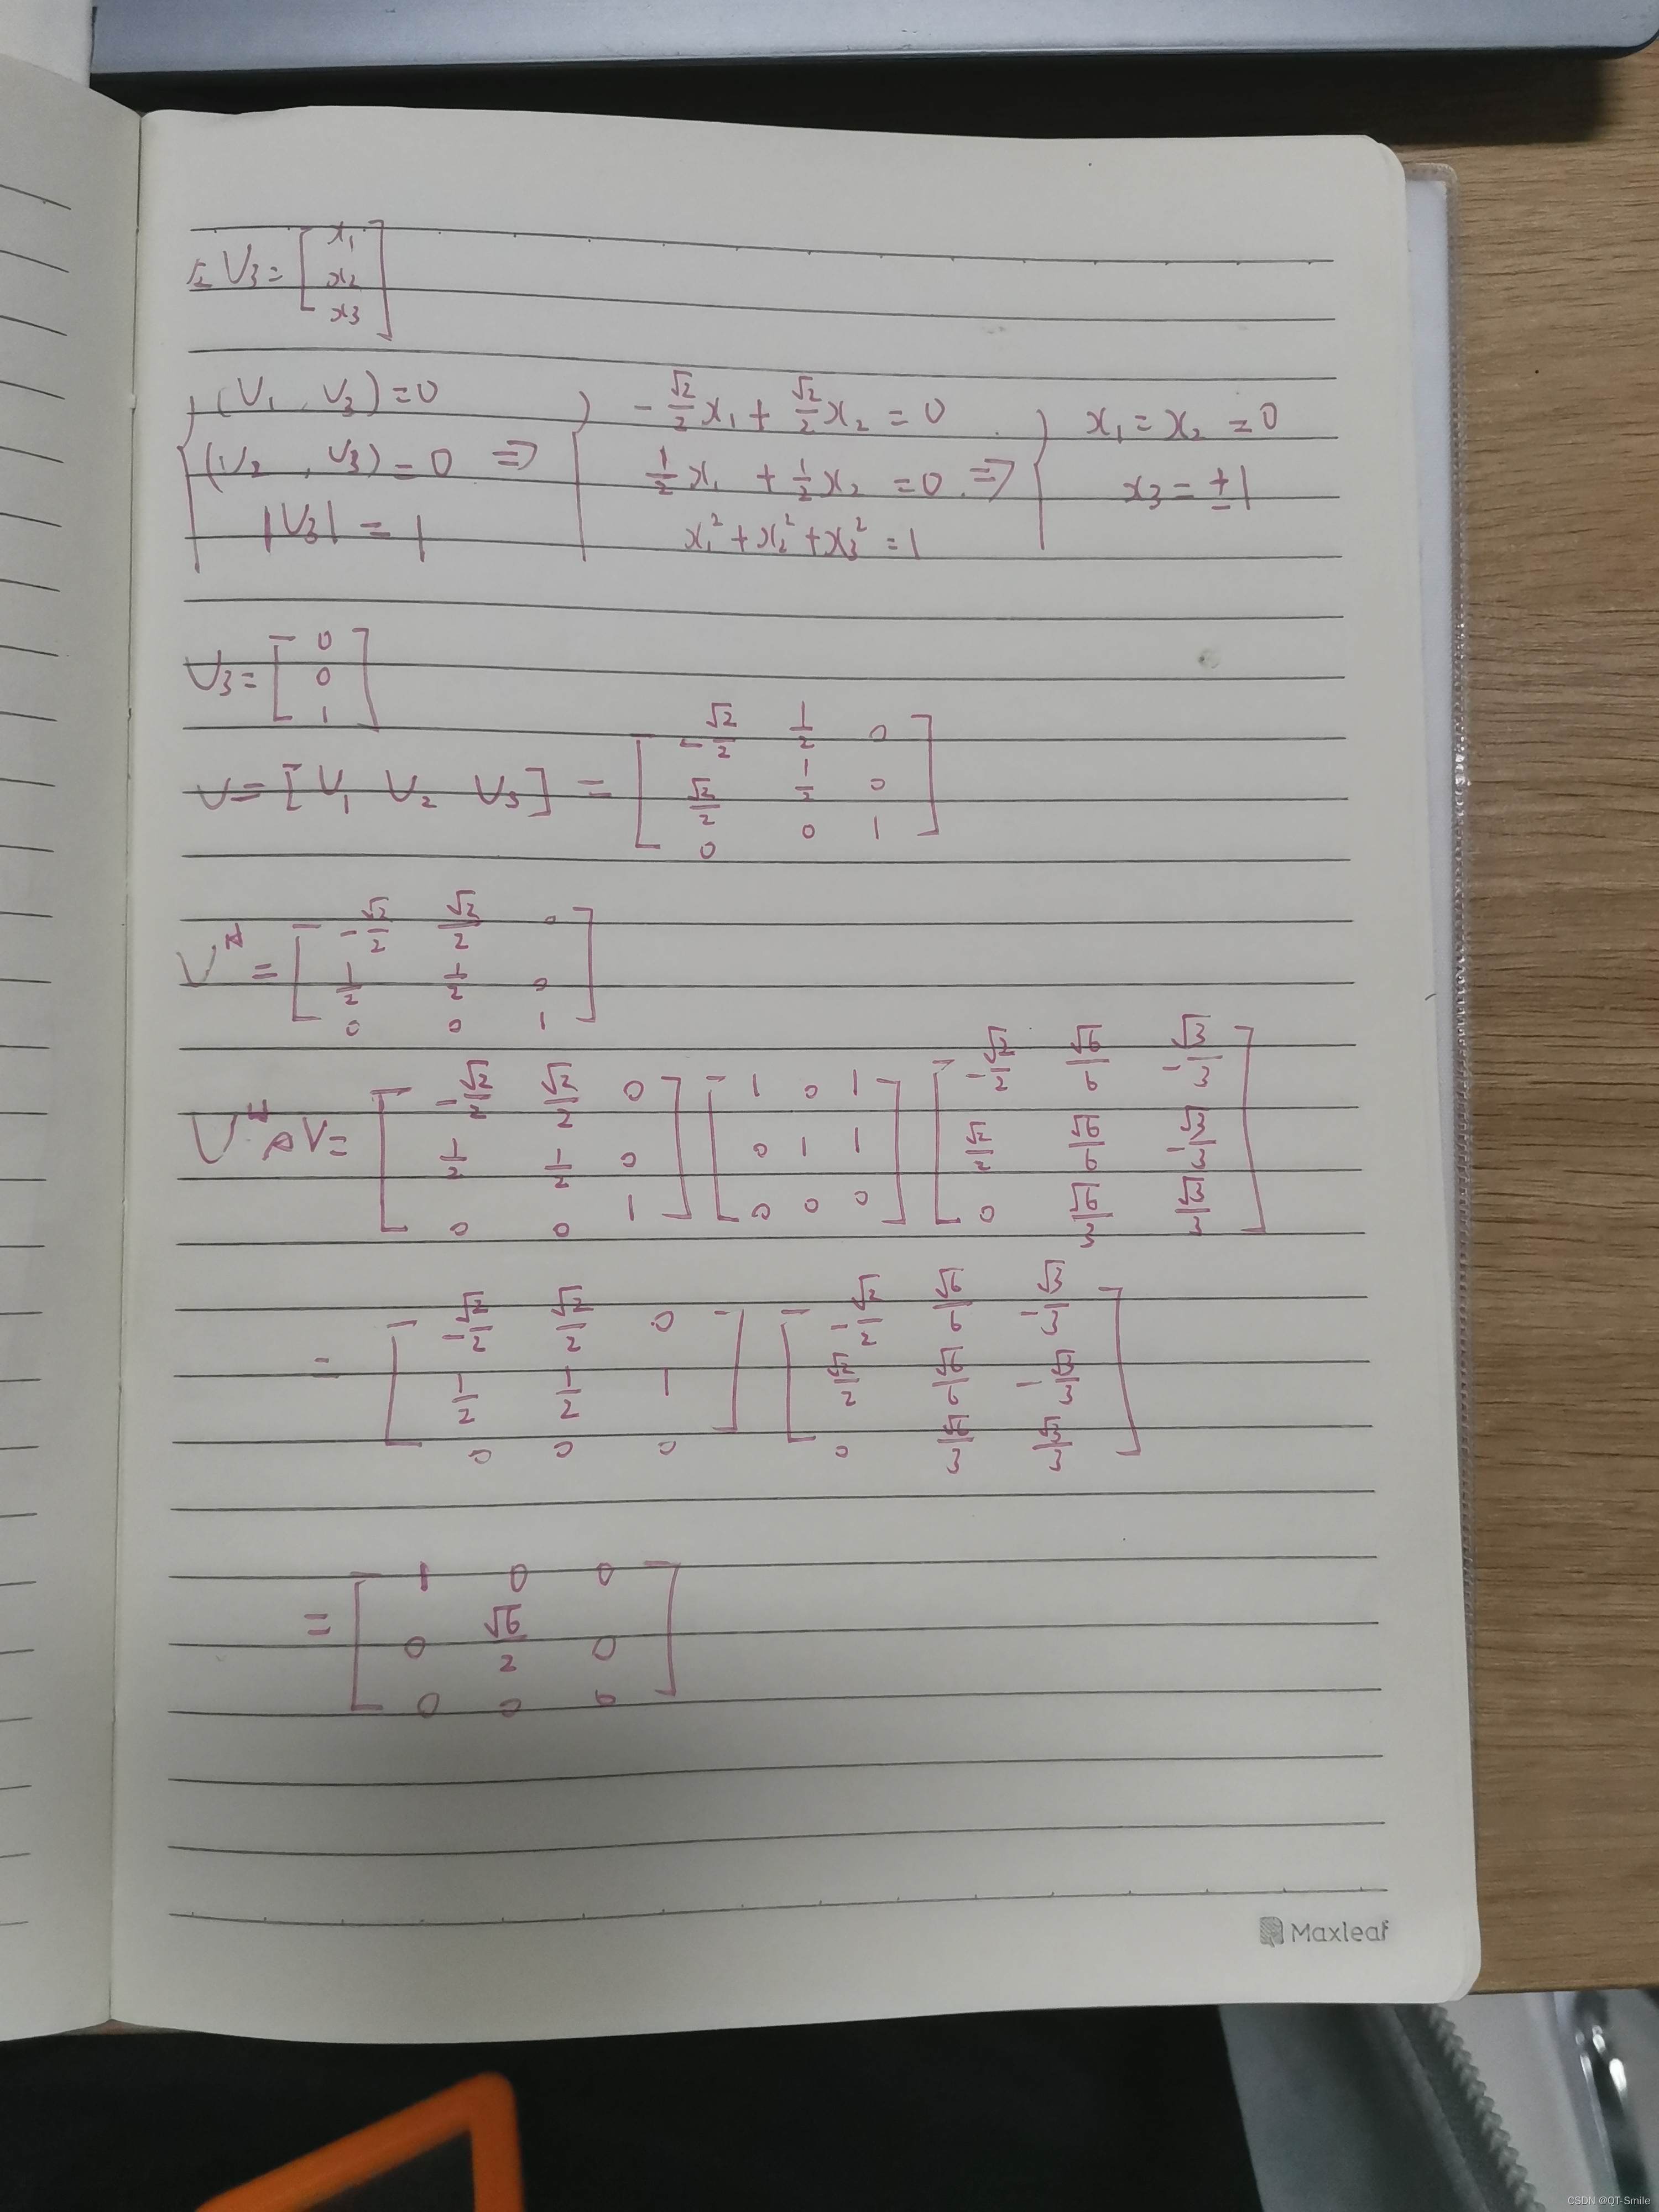 U₃ = [x₁; x₂; x₃]
{ (U₁, U₃) = 0; (U₂, U₃) = 0; |U₃| = 1 ⇒ { -√2/2 x₁ + √2/2 x₂ = 0; 1/2 x₁ + 1/2 x₂ = 0; x₁² + x₂² + x₃² = 1 ⇒ { x₁ = x₂ = 0; x₃ = ±1
U₃ = [0; 0; 1]
U = [U₁ U₂ U₃] = [-√2/2 1/2 0; √2/2 1/2 0; 0 0 1]
U^H = [-√2/2 √2/2 0; 1/2 1/2 0; 0 0 1]
U^H A V = [-√2/2 √2/2 0; 1/2 1/2 0; 0 0 1] [1 0 1; 0 1 1; 0 0 0] [-√2/2 √6/6 -√3/3; √2/2 √6/6 -√3/3; 0 √6/3 √3/3]
= [-√2/2 √2/2 0; 1/2 1/2 1; 0 0 0] [-√2/2 √6/6 -√3/3; √2/2 √6/6 -√3/3; 0 √6/3 √3/3]
= [1 0 0; 0 √6/2 0; 0 0 0]
Maxleaf
CSDN @QT-Smile